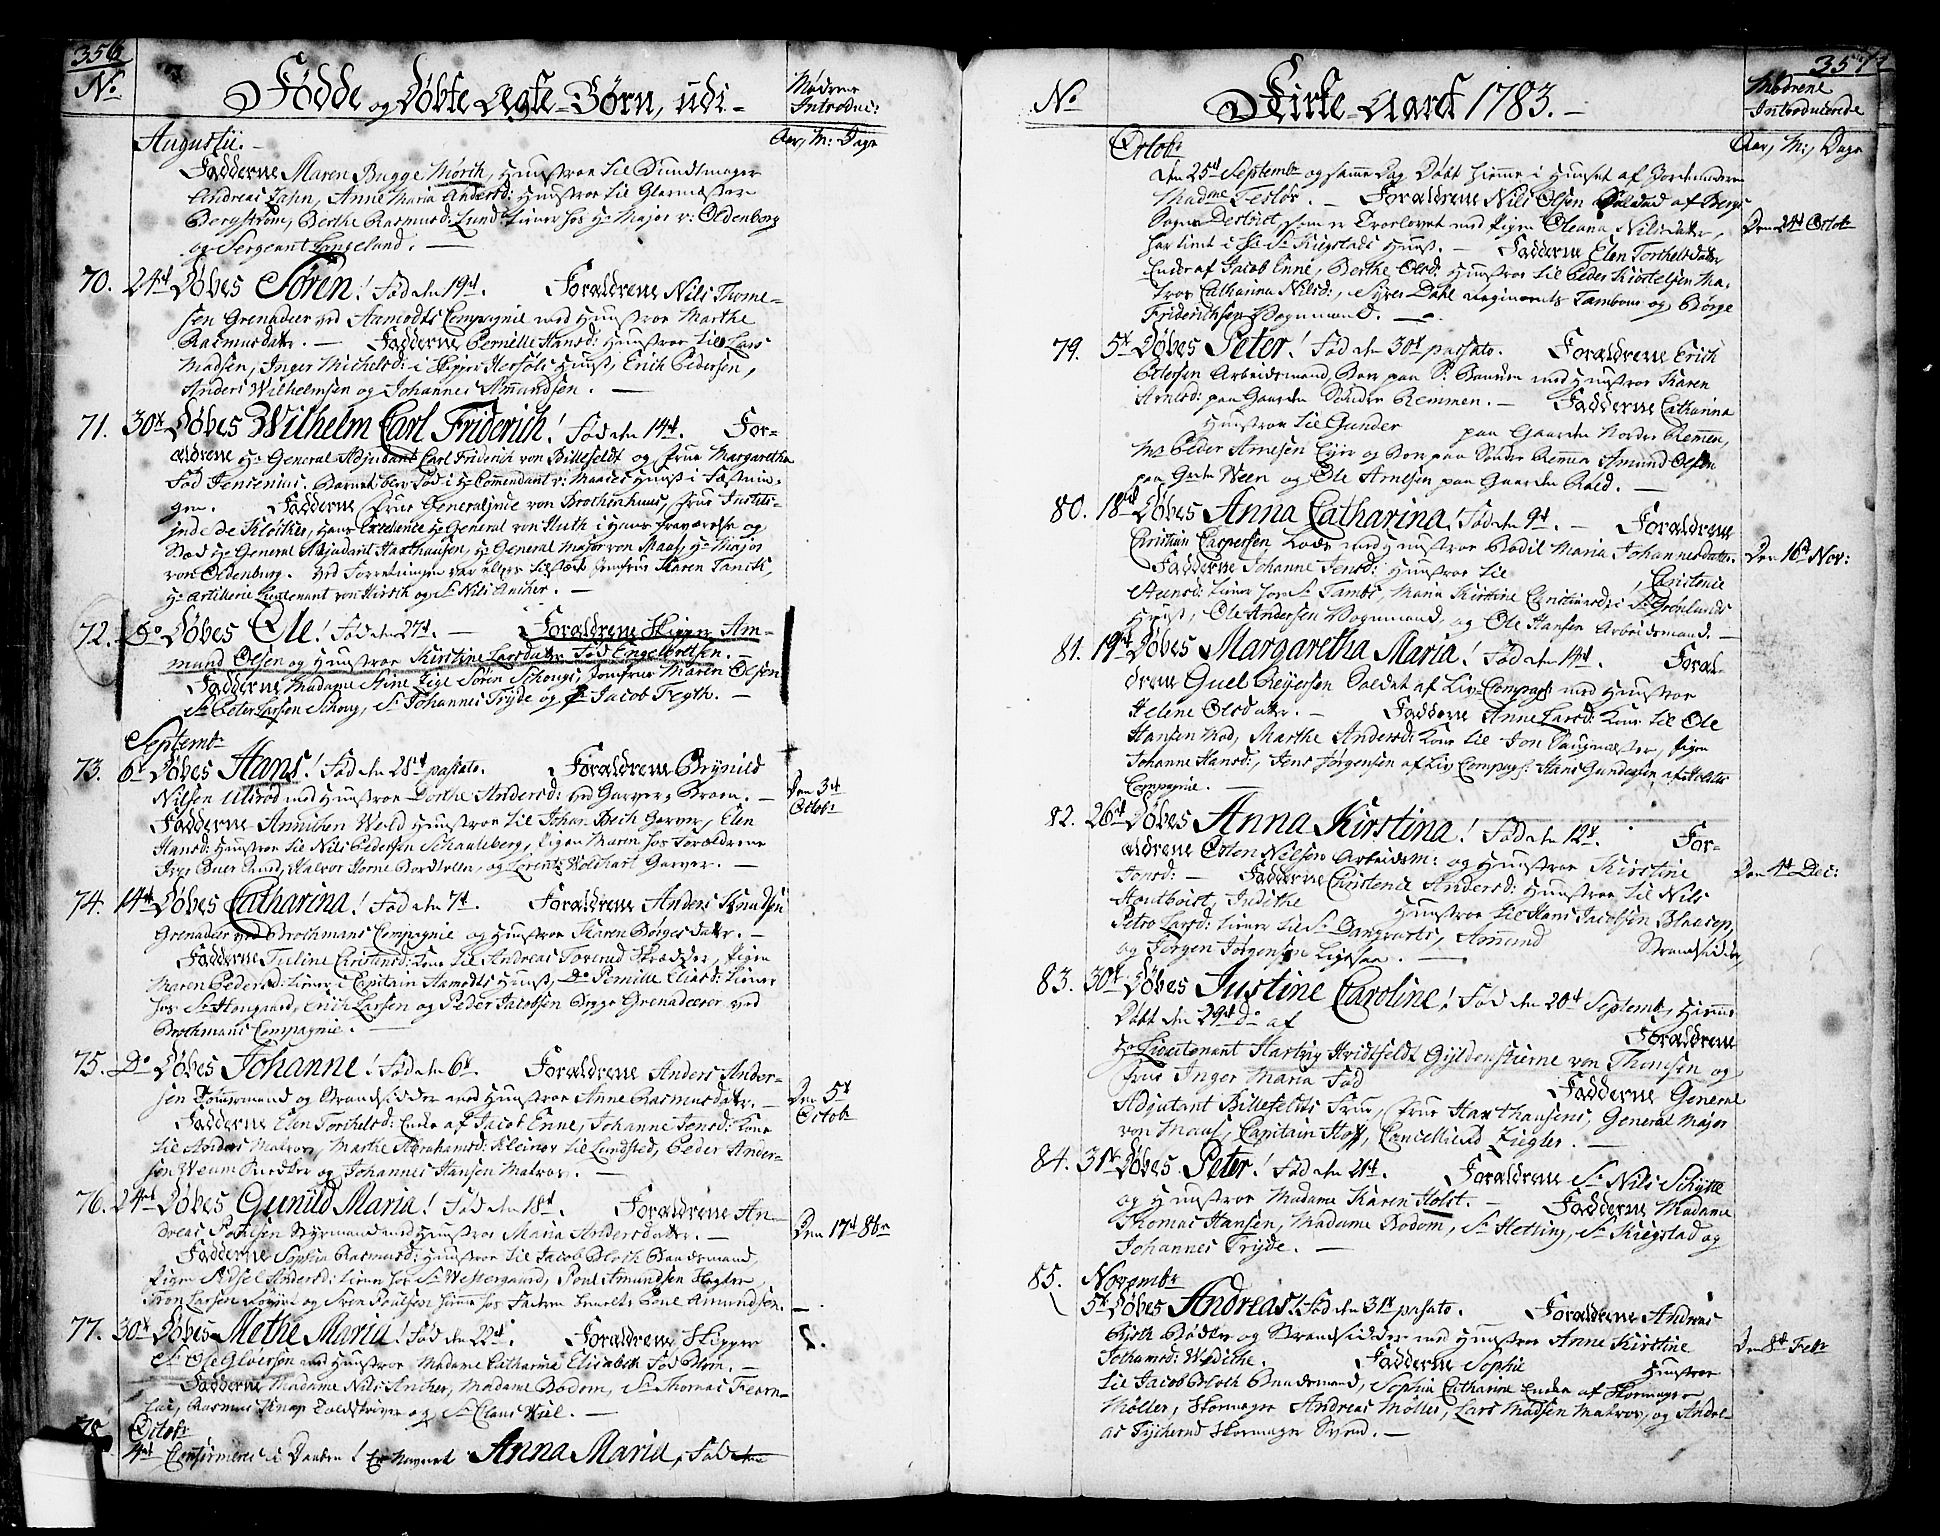 356
No
Fødde og Døbte Ægte-Børn, udi-
Mødrene
Introduc:
Aar, M: Dage
Augustii. -
Fadderne Maren Bugge Mörch, Hustroe til
Andreas Jahn, Anne Maria Andersd: Hustroe til Glarmæster
Bergstrøm, Berthe Rasmusd: Lund tiener hos Hr Major v: Oldenborg
og Sergeant Langeland. -
70. 24de Døbes Sören! Fød den 19d. Forældrene Nils Thome-
sen Grenadeer ved Aamodts Compagnie med Hustroe Marthe
Rasmusdattr. - Fadderne Pernille Hansd: Hustroe til Lars
Madsen, Inger Michelsd: i Skipper Hersols Huus, Erich Pedersen,
Anders Wilhelmsen og Johannes Amundsen. -
71. 30te Døbes Wilhelm Carl Friderich! Fød den 14d. For-
ældrene Hr General Adjudant Carl Friderich von Billefeldt og Frue Margaretha
Fød Jensenius. Barnet blev Fød i Hr Comendant v: Maases Huus i Fæstnin-
gen. Fadderne Frue Generalinde von Brochenhuus, Frue Justits-
inde De Klöcker, Hans Excellence Hr General von Huth i Hans fraværelse og
Sted Hr General Adjudant Haxthausen, Hr General Major von Maas, Hr Major
von Oldenburg. Ved Forretningen var ellers tilstede Jomfrue Karen Tanch,
Hr Artillerie Lieutenant von Hirsch og Sr Nils Ancher. -
72. Do Døbes Ole! Fød den 27d. - Forældrene Skipper Am-
mund Olsen og Hustroe Kirstine Larsdattr Fød Engelbretsen. -
Fadderne Madame Stine Sören Schougs, Jomfrue Maren Olsen
Sr Peter Larsen Schoug, Sr Johannes Tryde og Sr Jacob Fegth. -
Septembr
73. 6te Døbes Hans! Fød den 28d passato. Forældrene Brynild
Nilsen Ulsrod med Hustroe Dorthe Andersd: ved Garver-Broen. -
Den 3d
Octobr
Fadderne Annichen Weld Hustroe til Johan Bech Garver, Elen
Hansd: Hustroe til Nils Pedersen Schaaleberg, Pigen Maren hos Forældrene
Halvor Horne og Lorentz Wolchart Garver. -
74. 14de Døbes Catharina! Fød den 7d. Forældrene Anders Knudsen
Grenadeer ved Brochmans Compagnie og Hustroe Karen Börgesdattr. -
Fadderne Tuline Christensd: Kone til Andreas Torerud Skræder, Pigen
Maren Pedersd: tiener i Capitain Aamodts Huus, Do Pernille Eliasd: tiener
hos Sr Hougaard, Erich Larsen og Peder Jacobsen Begge Grenadeerer ved
Brochmans Compagnie. -
75. Do Døbes Johanne! Fød den 6d. Forældrene Anders Ander-
sen Tømmermand og Strandsidder med Hustroe Anne Rasmusdattr. -
Den 5d
Octobr
Fadderne Elen Torchelsd: Enke af Jacob Enne, Johanne Jonsd: Kone
til Anders Matros, Marthe Abrahamsd: til Lundsted, Peder Ander-
sen Weum og Johannes Hansen Matros. -
76. 24de Døbes Gunild Maria! Fød den 18d. Forældrene An-
dreas Poulsen Styrmand med Hustroe Maria Andersdattr. -
Den 17d 8br
Fadderne Sophia Rasmusd: Hustroe til Jacob Bloch Baadsmand,
Pigen Sidsel Andersd: tiener hos Sr Westergaard, Poul Amundsen
Tron Larsen og Sven Poulsen hiemme hos Faderen benevnte Poul Amundsen. -
77. 30te Døbes Methe Maria! Fød den 22d. Forældrene Skipper
Sr Ole Gløersen med Hustroe Madame Catharina Elisabeth Fød Blom. -
Fadderne Madame Nils Ancher, Madame Bodom, Sr Thomas Fearn-
ley, Rasmus Knap Toldskriver og Sr Claus Wiel. -
78. Octobr
4de Confirmeres i Daaben! Er Nævnet Anna Maria, Fød den
357
No
Kirke-Aaret 1783. -
Mødrene
Introducerede
Aar, M:, Dage
Octobr
den 25d Septembr og samme Dag Døbt hiemme i Huuset af Jordemoderen
Madme Feslov. - Forældrene Nils Olsen Soldat af Bergs
Sogns District, som er Troelovet med Pigen Oleana Nilsdattr,
Den 24d Octobr
har tient i Sr Kiegstads Huus. - Fadderne Elen Torchelsdattr
Enke af Jacob Enne, Berthe Olsd: Hustroe til Peder Kiostelsen Ma-
tros, Catharina Nilsd:, Syver Dahl Regiments Tambour og Börge
Friderichsen Vognmand. -
79. 5te Døbes Peter! Fød den 30d passato. Forældrene Erich
Petersen Arbeidsmand, Boer paa Sr Bannen med Hustroe Karen
Arnesd: paa Gaarden Sønder Remmen. - Fadderne Catharina
Hustroe til Gunder paa Gaarden Norder Remmen,
Mr Peder Arnesen Eyer og Boer paa Sönder Remmen Amund Olsen
paa Gaarden Ween og Ole Arnesen paa Gaarden Roed. -
80. 18de Døbes Anna Catharina! Fød den 9d. - Forældrene
Christian Caspersen Lods med Hustroe Bodil Maria Johannesdattr.
Den 16d Nov:
Fadderne Johanne Jensd: Hustroe til , Christence
Aunsd: tiener hos Sr Tambs, Maria Kirstine Christiansd: i Sr Grönlunds
Huus, Ole Andersen Vognmand, og Ole Hansen Arbeidsmand. -
81. 19de Døbes Margaretha Maria! Fød den 14d. Foræl-
drene Guel Reyersen Soldat af Liv-Compagt: med Hustroe
Helene Olsdattr. - Faddere Anne Larsd: Kone til Ole
Hansen Wod, Marthe Andersd: Kone til Jon Vaugmæster, Pigen
Johanne Hansd:, Jens Jörgensen af Liv Compagt: Hans Gundersen af
Compagnie. -
82. 26de Døbes Anna Kirstina! Fød den 12d. For-
ældrene Östen Nilsen Arbeidsm: og Hustroe Kirstine
Jonsd: - Fadderne Christence Andersd: Hustroe til Nils
Den 4d Dec:
Houtboist, Judithe Hustroe til Hans Jacobsen Blaasop,
Petro Larsd: tiener til Sr Dangvarts, Amund Strandsidder,
og Jörgen Jörgensen Ligesaa. -
83. 30te Døbes Justine Caroline! Fød den 20d Septembr, Hiemme
Døbt den 29d Do af Forældrene
Hr Lieutenant Hartvig Hvidtfeldt Gyldenstierne von Thomsen og
Frue Inger Maria Fød Fadderne General
Adjutant Billefeldts Frue, Frue Haxthausens, General Major
von Maas, Capitain Hoff, Cancellieraad Ziegler. -
84. 31te Døbes Peter! Fød den 21d. Forældrene Sr Nils Schytte
og Hustroe Madame Karen Holst. - Fadderne Madame
Thomas Hansen, Madame Bodom, Sr Hetting, Sr Kiegstad og
Johannes Tryde. -
85. Novembr
5te Døbes Andreas! Fød den 31d passato. Forældrene Andreas
Bisch Bödker og Strandsidder med Hustroe Anne Kirstine
Den 8d Febr
Johansd: Wedithe. Fadderne Sophie Hustroe
til Jacob Bloch Baadsmand, Sophia Catharine Enke af Skomager
Möller, Skomager Andreas Möller, Lars Madsen Matros, og Andre-
as Skomager Svend. -